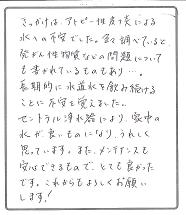 きっかけは、アトピー性皮フ炎による
水への不安でした。色々調べていると
発がん性物質などの問題についても
書かれているものもあり…。
長期的に水道水を飲み続ける
ことに不安を覚えました。
セントラル浄水器により、家中の
水が良いものになり、うれしく
思っています。また、メンテナンスも
安心できるもので、とても良かった
です。これからもよろしくお願い
します！